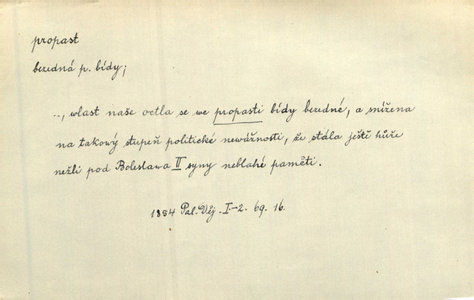 propast
bezedná p. bídy;
..., wlast naše octla se we propasti bídy bezedné, a snížena
na takowý stupeň politické newážnosti, že stála ještě hůře
nežli pod Boleslawa II syny neblahé paměti.
1854 Pal. Děj. I-2. 69. 16.